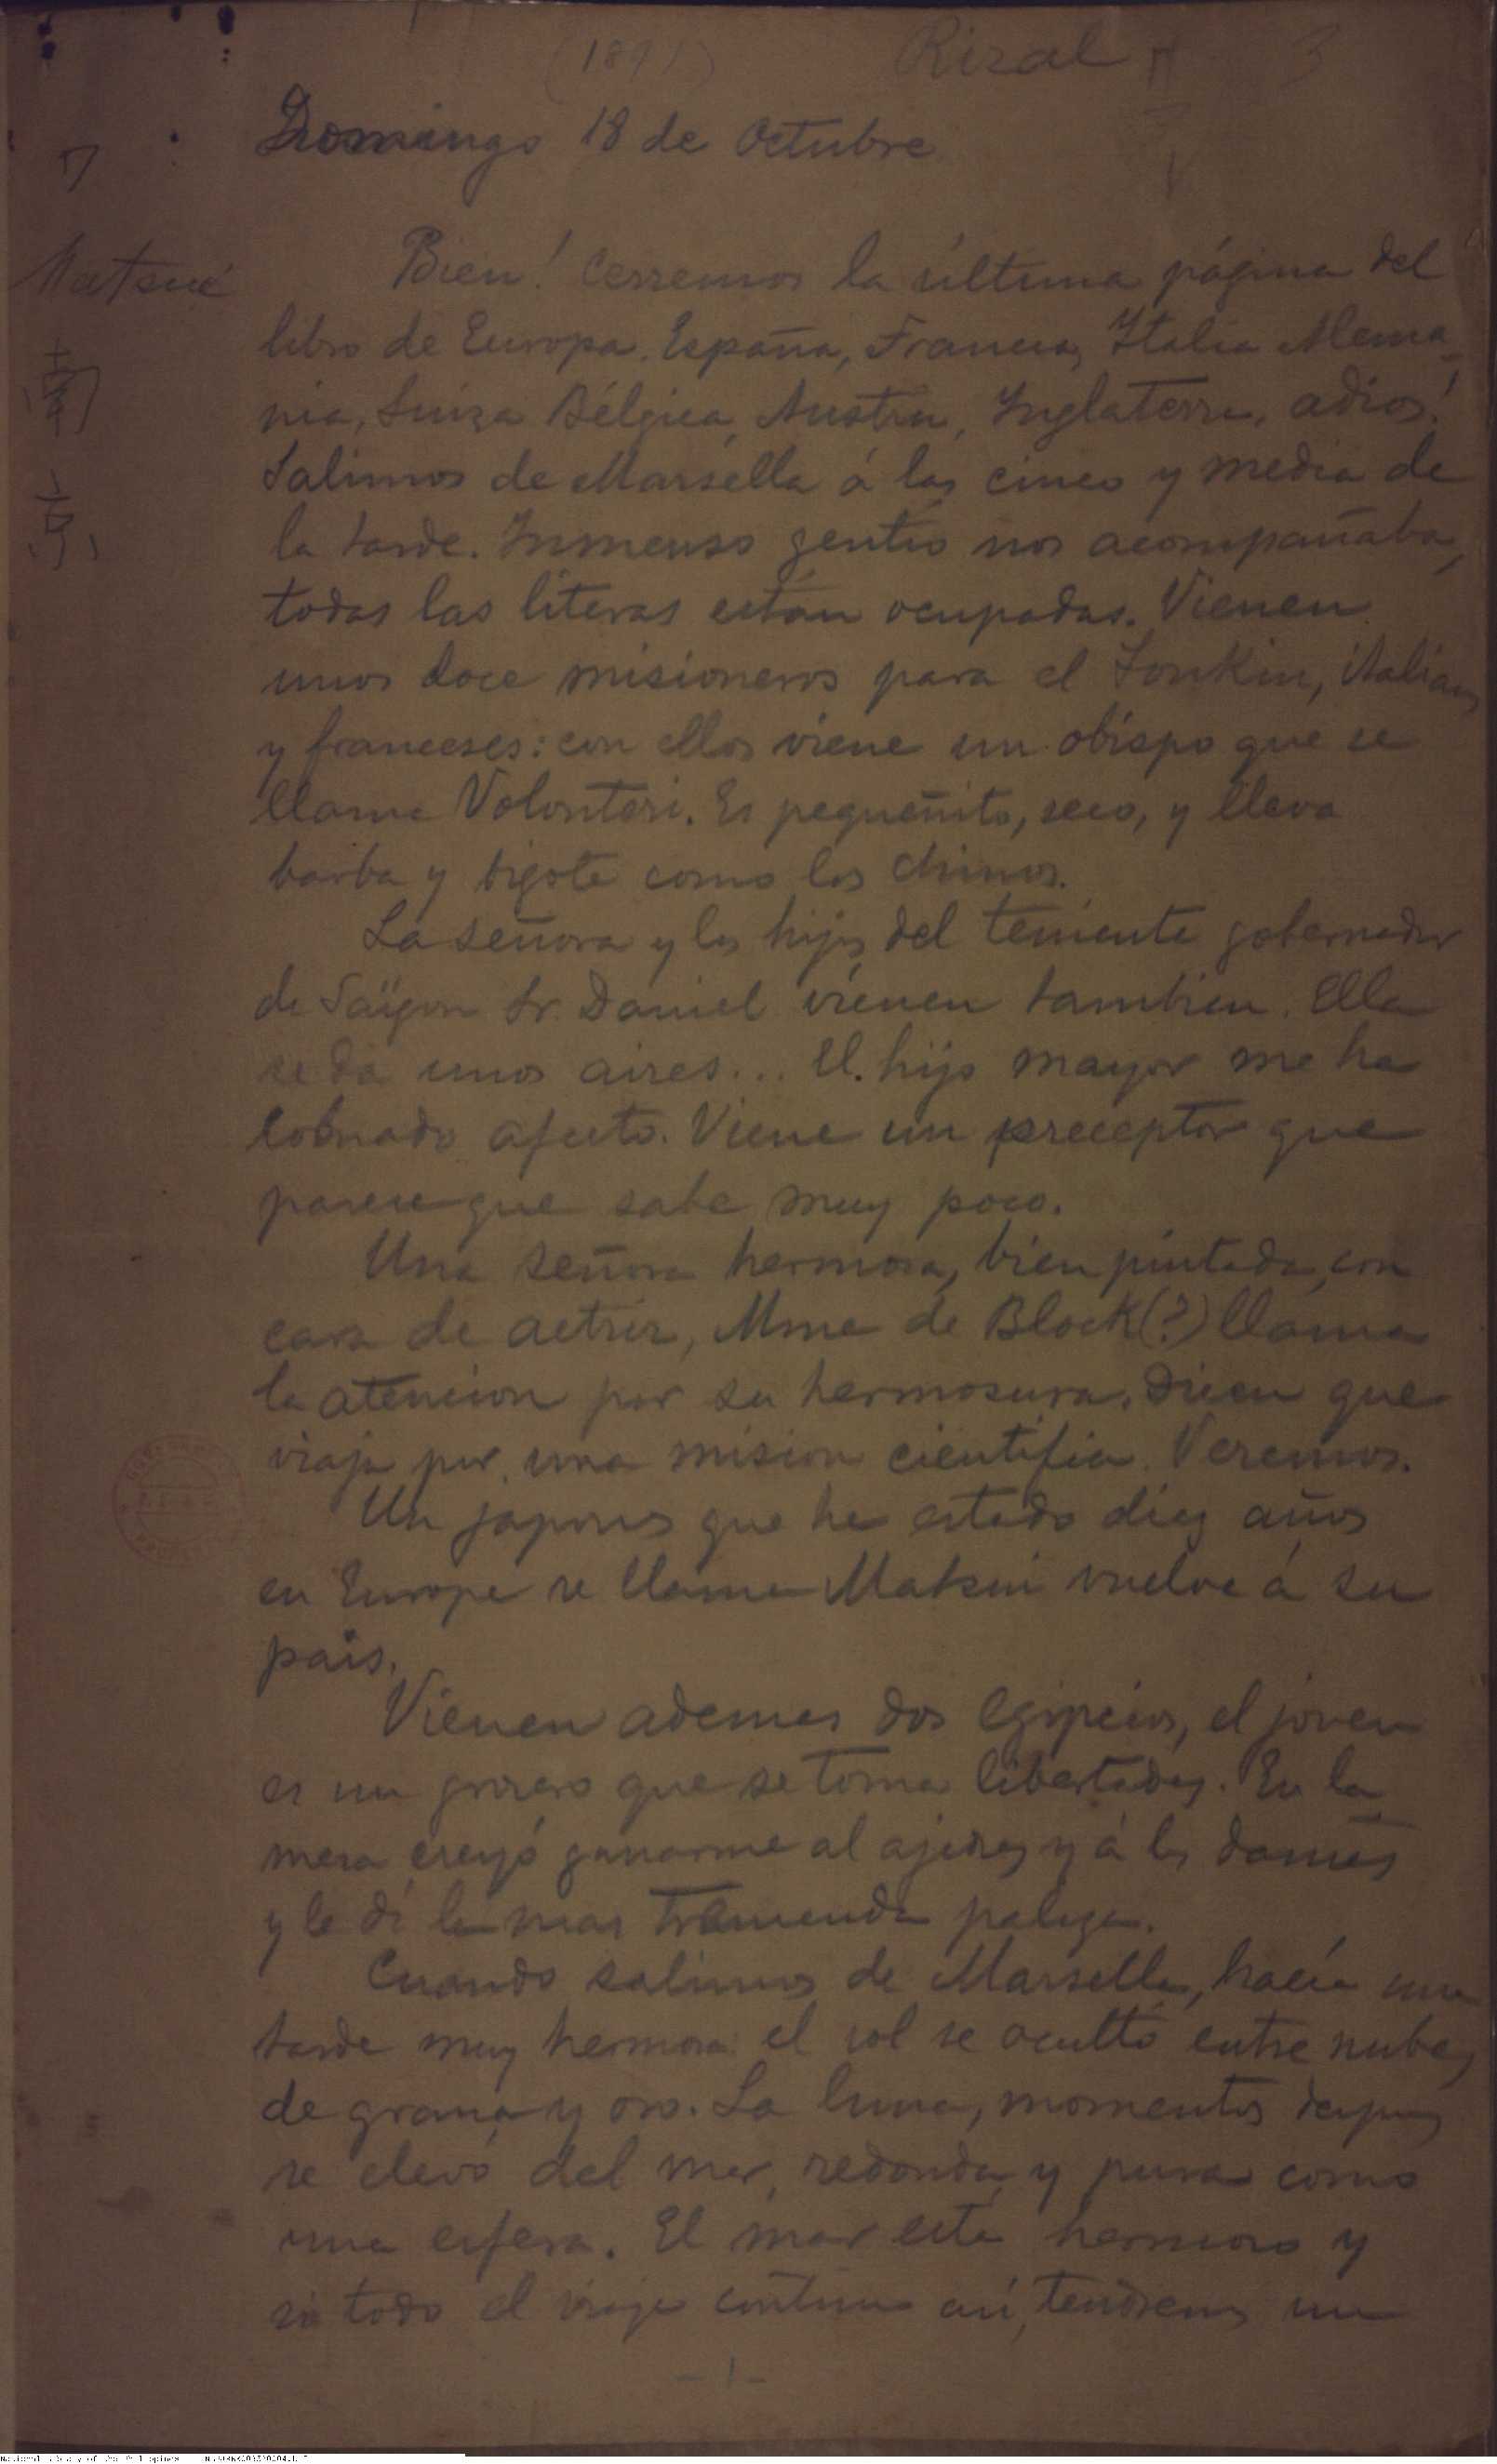 (1891) Rizal 3
Domingo 18 de Octubre
Bien! Cerremos la última página del
libro de Europa. España, Francia, Italia Alema-
nia, Suiza Bélgica, Austria, Inglaterra, adios!
Salimos de Marsella á las cinco y media de
la tarde. Inmenso gentío nos acompañaba,
todas las literas están ocupadas. Vienen
unos doce misioneros para el Tonkin, italianos
y franceses: con ellos viene un obispo que se
llama Volonteri. Es pequeñito, seco, y lleva
barba y bigote como los chinos.
La señora y los hijos del teniente gobernador
de Saïgon Sr. Daniel vienen tambien. Ella
se da unos aires... El hijo mayor me ha
cobrado afecto. Viene un preceptor que
parece que sabe muy poco.
Una señora hermosa, bien pintada, con
cara de actriz, Mme de Block(?) llama
la atencion por su hermosura. Dicen que
viaja por una mision científica. Veremos.
Un japones que ha estado diez años
en Europa se llama Matsui vuelve á su
pais.
Vienen ademas dos egipcios, el joven
es un grosero que se toma libertades. En la
mesa creyó ganarme al ajedrez y á las damas
y le dí la mas tremenda paliza.
Cuando salimos de Marsella, hacía una
tarde muy hermosa: el sol se ocultó entre nubes
de grana y oro. La luna, momentos despues
se elevó del mar, redonda y pura como
una esfera. El mar esta hermoso y
si todo el viaje continua así, tendremos un
-1-
南
京